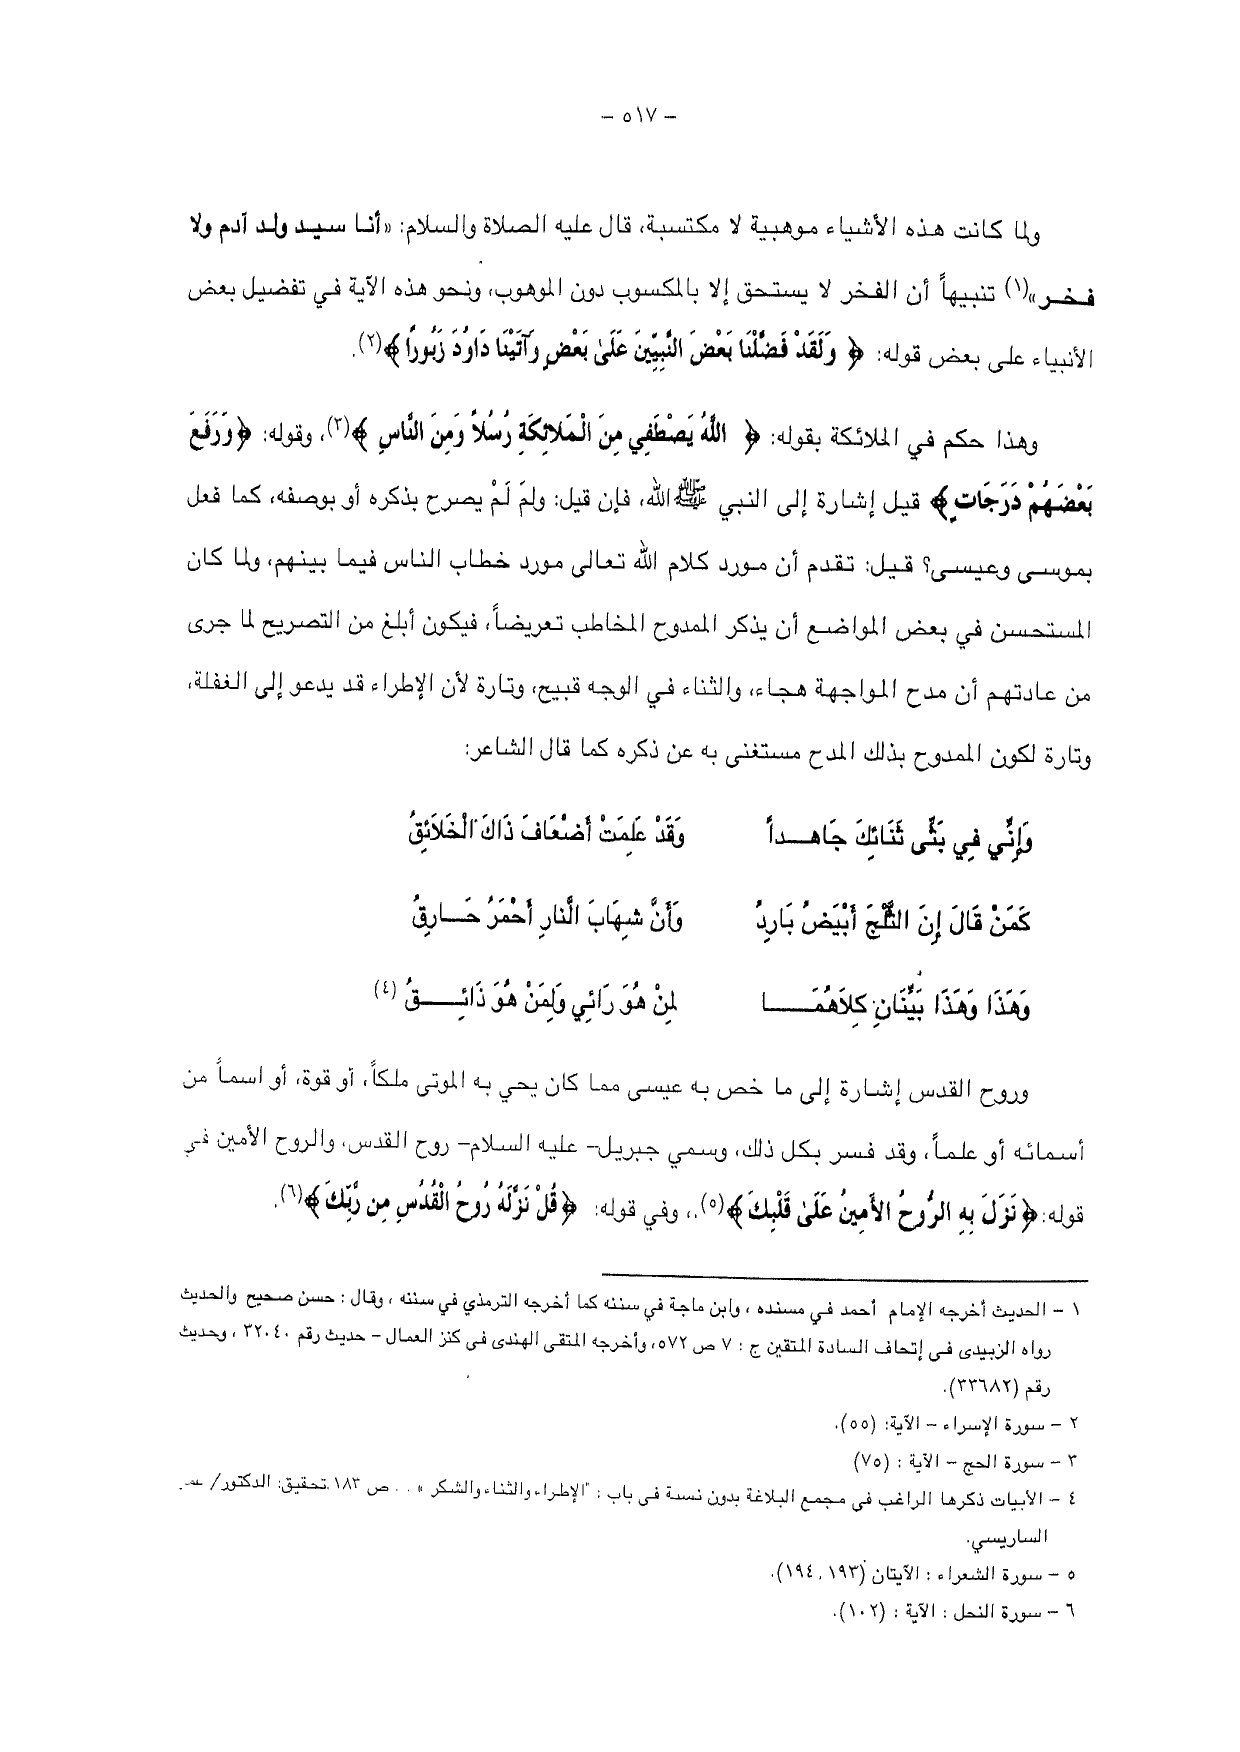 – ٥١٧ –
ولما كانت هذه الأشياء موهبية لا مكتسبة، قال عليه الصلاة والسلام: «أنا سيد ولد آدم ولا
فخر»(١) تنبيهاً أن الفخر لا يستحق إلا بالمكسوب دون الموهوب، ونحو هذه الآية في تفضيل بعض
الأنبياء على بعض قوله: ﴿ وَلَقَدْ فَضَّلْنَا بَعْضَ النَّبِيِّينَ عَلَىٰ بَعْضٍ وَآتَيْنَا دَاوُدَ زَبُوراً ﴾(٢).
وهذا حكم في الملائكة بقوله: ﴿ اللَّهُ يَصْطَفِي مِنَ الْمَلائِكَةِ رُسُلاً وَمِنَ النَّاسِ ﴾(٣)، وقوله: ﴿وَرَفَعَ
بَعْضَهُمْ دَرَجَاتٍ﴾ قيل إشارة إلى النبي ﷺ الله، فإن قيل: ولمَ لَمْ يصرح بذكره أو بوصفه، كما فعل
بموسى وعيسى؟ قيل: تقدم أن مورد كلام الله تعالى مورد خطاب الناس فيما بينهم، ولما كان
المستحسن في بعض المواضع أن يذكر الممدوح المخاطب تعريضاً، فيكون أبلغ من التصريح لما جرى
من عادتهم أن مدح المواجهة هجاء، والثناء في الوجه قبيح، وتارة لأن الإطراء قد يدعو إلى الغفلة،
وتارة لكون الممدوح بذلك المدح مستغنى به عن ذكره كما قال الشاعر:
وَإِنِّي فِي بَثِّي ثَنَائِكَ جَاهـــداً وَقَدْ عَلِمَتْ أَضْعَافَ ذَاكَ الْخَلَائِقُ
كَمَنْ قَالَ إِنَ الثَّلْجَ أَبْيَضُ بَارِدُ وَأَنَّ شِهَابَ النَّارِ أَحْمَرُ حَـــارِقُ
وَهَذَا وَهَذَا بَيِّنَانِ كِلاَهُمَــــــا لِمَنْ هُوَ رَائِي وَلِمَنْ هُوَ ذَائِـــــقُ (٤)
وروح القدس إشارة إلى ما خص به عيسى مما كان يحي به الموتى ملكاً، أو قوة، أو اسماً من
أسمائه أو علماً، وقد فسر بكل ذلك، وسمي جبريل– عليه السلام– روح القدس، والروح الأمين في
قوله:﴿ نَزَلَ بِهِ الرُّوحُ الأَمِينُ عَلَىٰ قَلْبِكَ﴾(٥).، وفي قوله: ﴿قُلْ نَزَّلَهُ رُوحُ الْقُدُسِ مِن رَّبِّكَ﴾(٦).
١ – الحديث أخرجه الإمام أحمد في مسنده ، وابن ماجة في سننه كما أخرجه الترمذي في سننه ، وقال : حسن صحيح والحديث
رواه الزبيدى فى إتحاف السادة المتقين ج : ٧ ص ٥٧٢، وأخرجه المتقى الهندى فى كنز العمال – حديث رقم ٣٢٠٤٠ ، وحديث
رقم (٣٣٦٨٢).
٢ – سورة الإسراء – الآية: (٥٥).
٣ – سورة الحج – الآية : (٧٥)
٤ – الأبيات ذكرها الراغب في مجمع البلاغة بدون نسبة فى باب : "الإطراء والثناء والشكر » . . ص ١٨٣ تحقيق: الدكتور/
الساريسي.
٥ – سورة الشعراء : الآيتان (١٩٣، ١٩٤).
٦ – سورة النحل : الآية : (١٠٢).